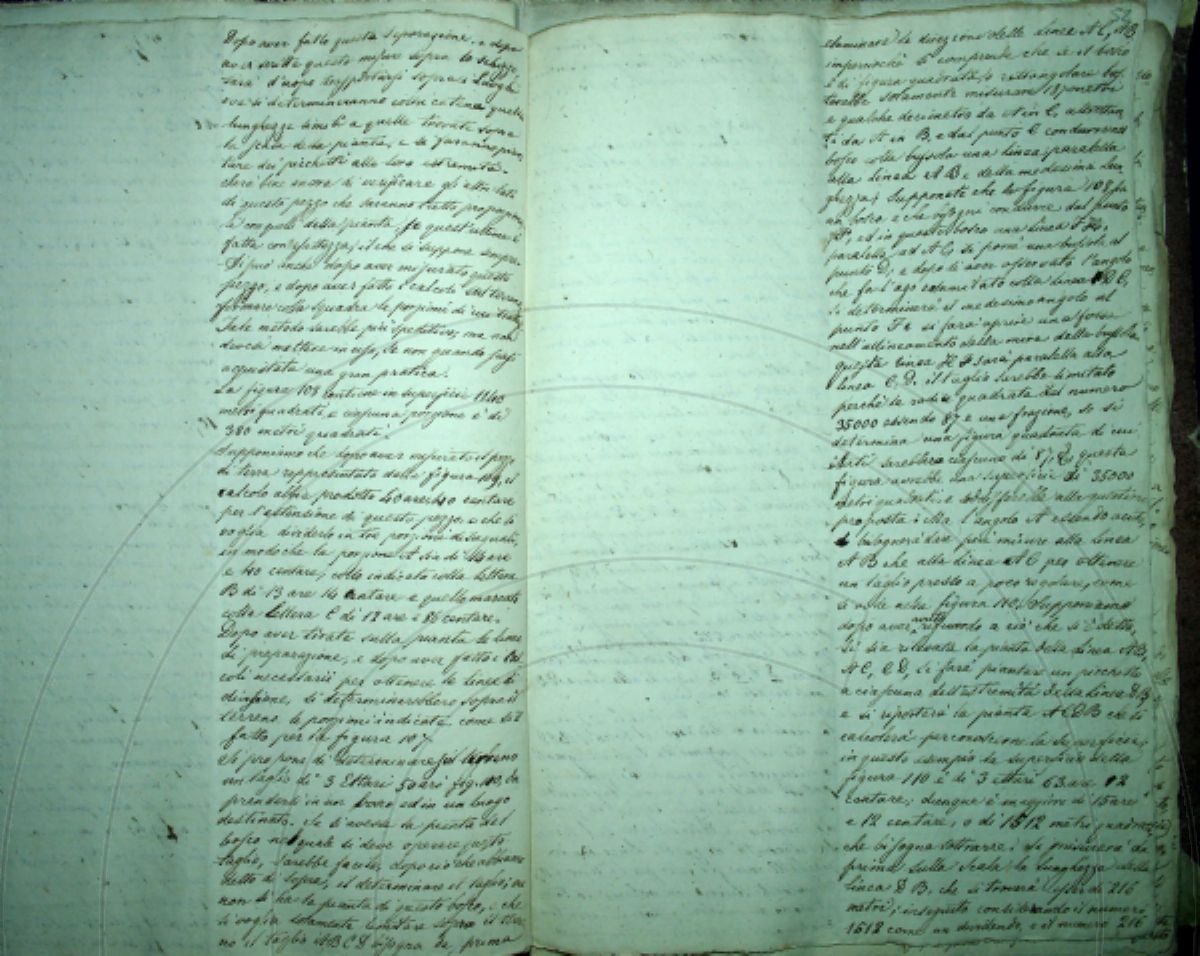 Dopo aver fatto questa preparazione, e dopo
aver scritte queste misure sopra lo schizzo
sarà d'uopo trasportarsi sopra i luoghi
ove si determineranno colla catena quelle
lunghezze simili a quelle trovate sopra
la scala della pianta, e si faranno pian
tare dei picchetti alle loro estremità.
sarà bene ancora di verificare gli altri lati
di questo pezzo che saranno tutti proporzio
ne con quei della pianta, se quest'ultima è
fatta con esattezza, il che si suppone sempre.
Si può anche dopo aver misurato questo
pezzo, e dopo aver fatto i calcoli sul terreno
formare colla squadra le porzioni di una
Tale metodo sarebbe più speditivo, ma non
devesi mettere in uso, se non quando siasi
acquistata una gran pratica.
La figura 108 contiene in superficie 1140
metri quadrati e ciascuna porzione è di
380 metri quadrati.
Supponiamo che dopo aver misurato il pezzo
di terra rappresentato dalla figura 109, il
calcolo abbia prodotto 40 are, 40 centare
per l'estensione di questo pezzo, e che si
voglia dividerlo in tre porzioni disuguali,
in modo che la porzione A sia di 14 are
e 40 centare, colla indicata colla lettera
B di 13 are 14 centare e quella marcata
colla lettera C di 12 are e 86 centare.
Dopo aver tirate sulla pianta le linee
di preparazione, e dopo aver fatto i cal
coli necessarii per ottenere le linee di
divisione, si determinerebbero sopra il
terreno le porzioni indicate come si è
fatto per la figura 107.
Si propone di determinare sul terreno
un taglio di 3 Ettari 50 ari fig. 110, da
prendersi in un bosco ed in un luogo
destinato. Se si avesse la pianta del
bosco nel quale si deve operare questo
taglio, sarebbe facile, dopo ciò che abbiamo
detto di sopra, il determinare il taglio, ma
non si ha la pianta di questo bosco, e che
si voglia solamente levare sopra il terre
no il taglio A B C D bisogna da prima
esaminare la direzione delle linee A C, A B
imperciocchè si comprende che se il bosco
è di figura quadrata o rettangolare bas
terebbe solamente misurare 187 metri
e qualche decimetro da A in C, altrettan
ti da A in B e dal punto C condurre nel
bosco colla bussola una linea parallela
alla linea A B e della medesima lun
ghezza; Supponete che la figura 108 sia
un bosco e che bisogni condurre dal punto
F, ed in questo bosco una linea F H,
parallela, ad A C, si porrà una bussola al
punto D, e dopo di aver osservato l'angolo
che fa l'ago calamitato colla linea D C,
si determinerà il medesimo angolo al
punto F e si farà aprire una fossa
nell'allineamento della mira della bussola
questa linea H F sarà parallela alla
linea C D. il taglio sarebbe limitato
perchè la radice quadrata del numero
35000 essendo 187 e una frazione, se si
determina una figura quadrata di cui
i lati sarebbero ciascuno di 187, questa
figura avrebbe una superficie di 35000
metri quadrati e soddisfarebbe alla questione
proposta: Ma l'angolo A essendo acuto,
bisognerà dare più misure alla linea
A B che alla linea A C per ottenere
un taglio presso a poco regolare, come
si vede nella figura 110. Supponiamo
dopo aver avuto riguardo a ciò che si è detto,
si sia rilevata la pianta delle linee A B,
A C, C D, si farà piantare un picchetto
a ciascuna dell'estremità della linea D B
e si riporterà la pianta A C D B che si
calcolerà per conoscerne la superficie;
in questo esempio la superficie della
figura 110 è di 3 ettari 63 are 12
centare; dunque è maggiore di 15 are
e 12 centare, o di 1512 metri quadrati
che bisogna sottrarre: si misurerà da
prima sulla scala la lunghezza della
linea D B, che si troverà esser di 216
metri; in seguito considerando il numero
1512 come un dividendo, e il numero 216